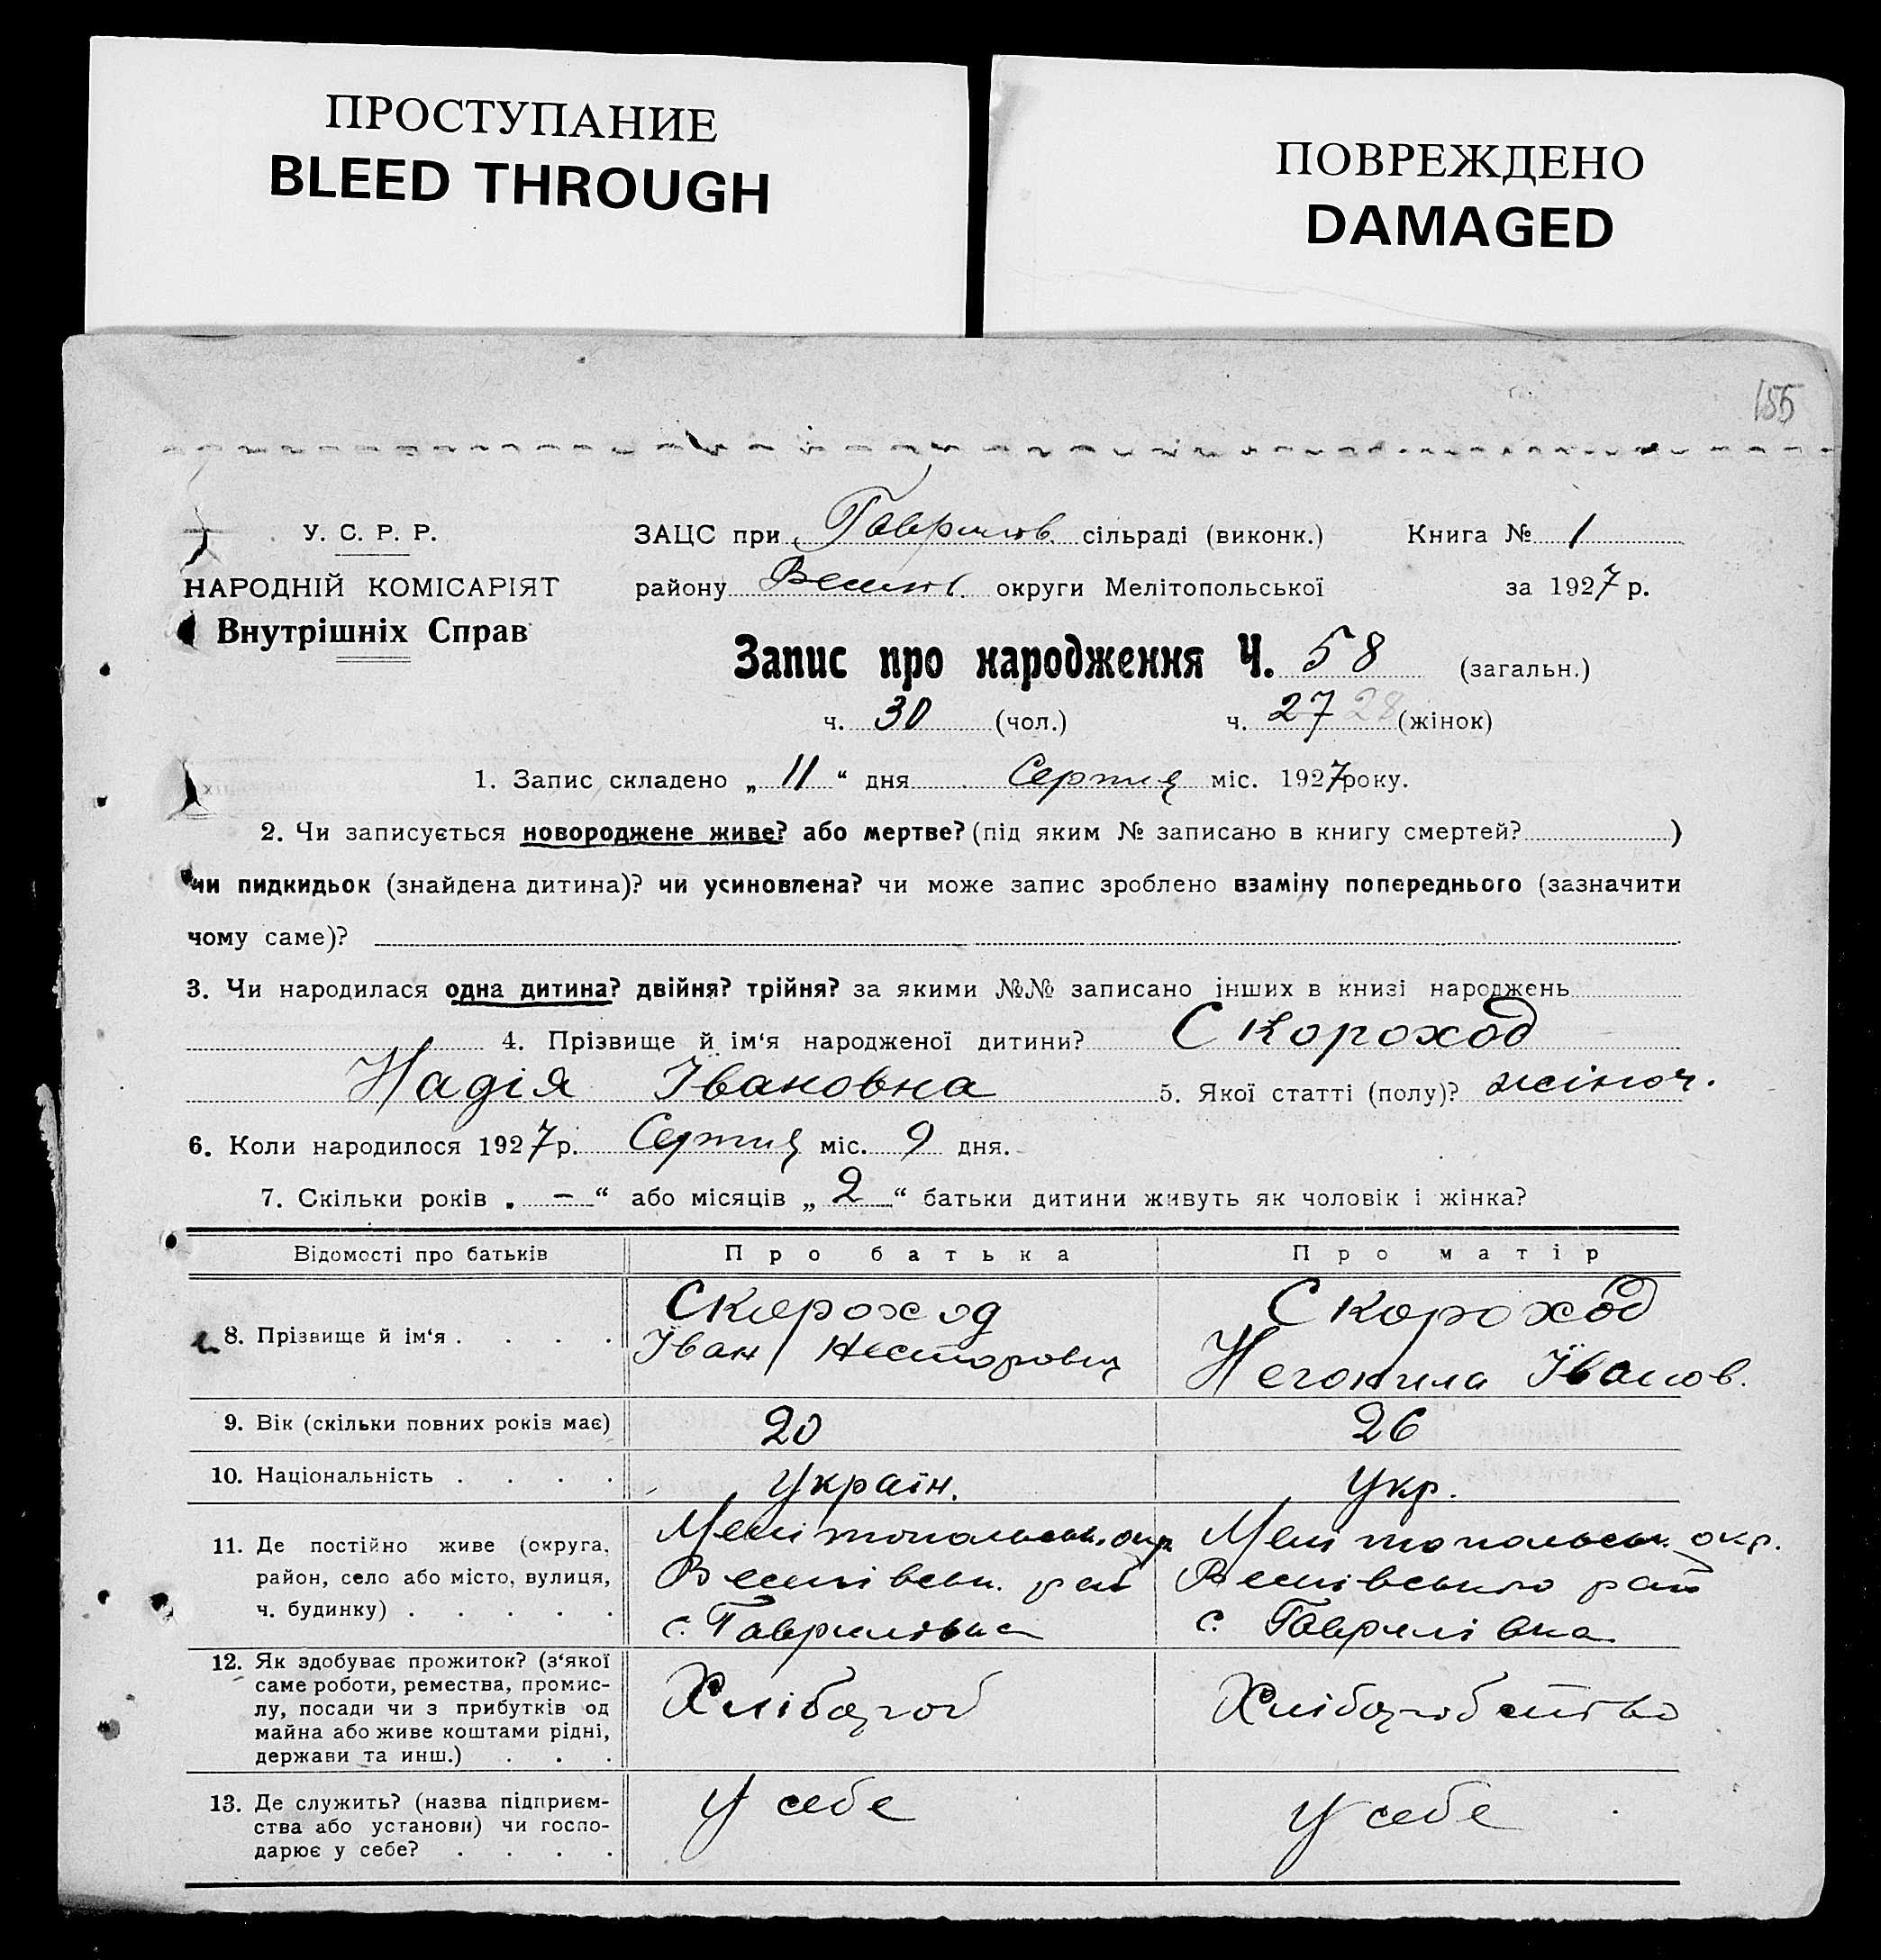 ПРОСТУПАНИЕ
BLEED THROUGH
ПОВРЕЖДЕНО
DAMAGED
155
У. С. Р. Р.
НАРОДНІЙ КОМІСАРІЯТ
Внутрішніх Справ
ЗАЦС при Гаврилов. сільраді (виконк.) Книга № 1
району Веселів. округи Мелітопольської за 1927 р.
Запис про народження Ч. 58 (загальн.)
ч. 30 (чол.) ч. 27 28 (жінок)
1. Запис складено „ 11 “ дня Серпня міс. 1927 року.
2. Чи записується новороджене живе? або мертве? (під яким № записано в книгу смертей? )
чи пидкидьок (знайдена дитина)? чи усиновлена? чи може запис зроблено взаміну попереднього (зазначити
чому саме)?
3. Чи народилася одна дитина? двійня? трійня? за якими №№ записано інших в книзі народжень
4. Прізвище й ім‘я народженої дитини? Скороход
Надія Івановна 5. Якої статті (полу)? жіноч.
6. Коли народилося 1927 р. Серпня міс. 9 дня.
7. Скільки років „ — “ або місяців „ 2 “ батьки дитини живуть як чоловік і жінка?
Відомості про батьків Про батька Про матір
8. Прізвище й ім‘я . . . . Скороход Скороход
Іван Несторович Івонов.
9. Вік (скільки повних років має) 20 26
10. Національність . . . . Україн. Укр.
11. Де постійно живе (округа, Мелітопольськ. окр. Мелітопольськ. окр.
район, село або місто, вулиця, Веселівськ. рай Веселівського рай
ч. будинку) . . . . . с. Гаврилівка с. Гаврилівка
12. Як здобуває прожиток? (з‘якої
саме роботи, ремества, промис-
лу, посади чи з прибутків од Хлібороб Хліборобство
майна або живе коштами рідні,
держави та инш.) . . .
13. Де служить? (назва підприєм- У себе У себе
ства або установи) чи госпо-
дарює у себе? . . . .